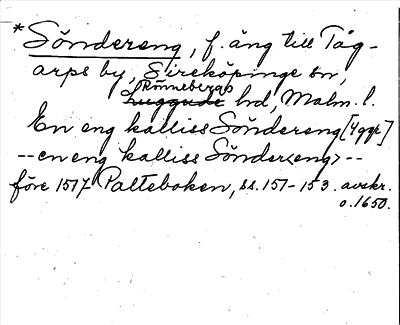 *Söndereng, f. äng till Tåg-
arps by, Sireköpinge sn,
Rönnebergs
Luggude hd, Malm. l.
En eng kalliss Söndereng [4 ggr]
--en eng kalliss Sönder<eng>--
före 1517 Palteboken, ss. 151-153. avskr.
o. 1650.